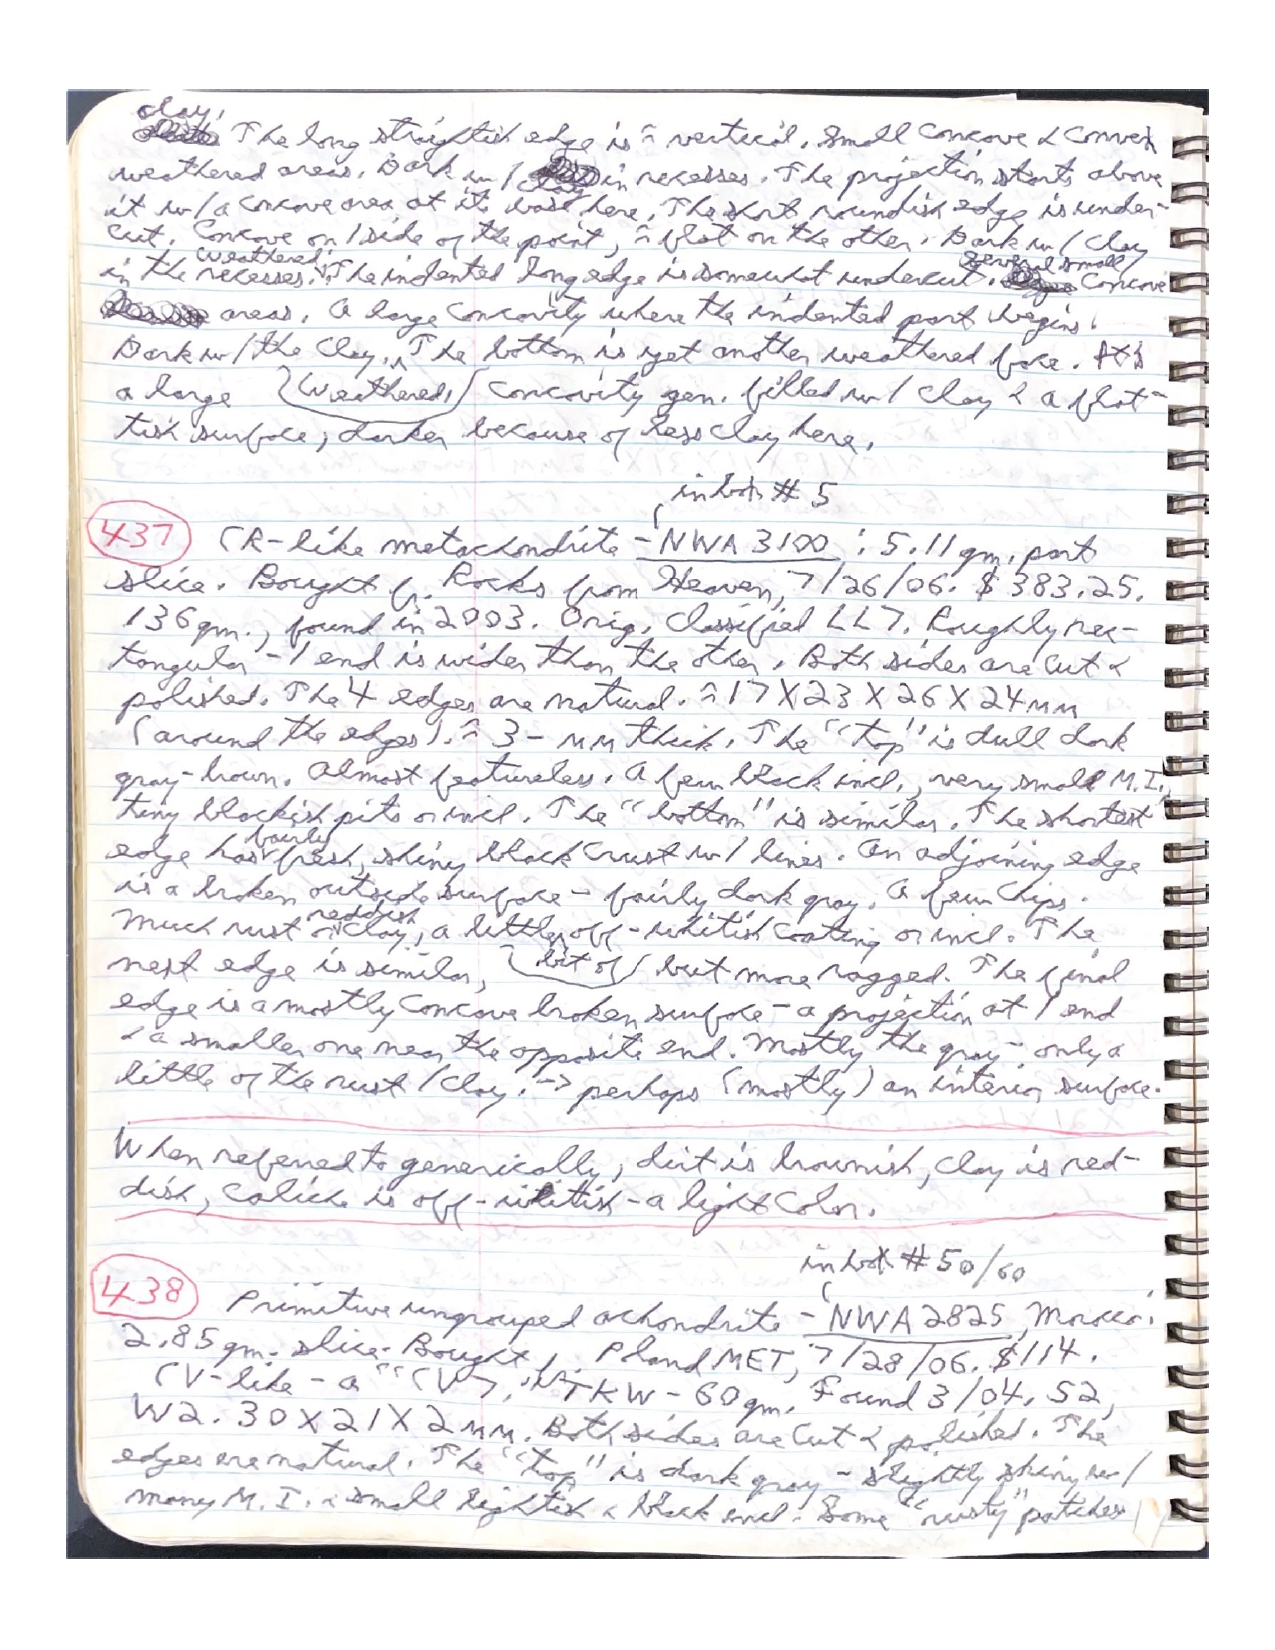 clay.
The long straightish edge is ≈ vertical. Small concave & convex
weathered areas. Dark w/ clay in recesses. The projection starts above
it w/ a concave area at its base here. The short roundish edge is under-
cut. Concave on 1 side of the point, ≈ flat on the other. Dark w/ clay
in the weathered recesses. The indented long edge is somewhat undercut. several small concave
areas. A large concavity where the indented part begins.
Dark w/ the clay. The bottom is yet another weathered face. It's
a large (weathered) concavity gen. filled w/ clay & a flat-
tish surface, darker because of less clay here.
in box # 5
437 CR-like metachondrite - NWA 3100 : 5.11 gm. part
slice. Bought f. Rocks from Heaven, 7/26/06. $383.25.
136 gm., found in 2003. Orig. classified LL7. Roughly rec-
tangular - 1 end is wider than the other. Both sides are cut &
polished. The 4 edges are natural. ≈ 17 X 23 X 26 X 24 mm
(around the edges). ≈ 3 - mm thick. The "top" is dull dark
gray-brown. Almost featureless. A few black incl., very small M.I.,
tiny blackish pits or incl. The "bottom" is similar. The shortest
edge has fairly fresh, shiny black crust w/ lines. An adjoining edge
is a broken outside surface - fairly dark gray. A few chips.
Much rust or reddish clay, a little off-whitish coating or incl. The
next edge is similar, (bit of) but more ragged. The final
edge is a mostly concave broken surface - a projection at 1 end
& a smaller one near the opposite end. Mostly the gray - only a
little of the rust / clay. -> perhaps (mostly) an interior surface.
When referred to generically, dirt is brownish, clay is red-
dish, caliche is off-whitish - a light color.
in box # 50/60
438 Primitive ungrouped achondrite - NWA 2825, Morocco.
2.85 gm. slice. Bought f. PlandMET, 7/28/06. $114.
CV-like - a "CV7." TKW - 60 gm. Found 3/04. S2,
W2. 30 X 21 X 2 mm. Both sides are cut & polished. The
edges are natural. The "top" is dark gray - slightly shiny w/
many M.I. & small lightish & black incl. Some "rusty" patches